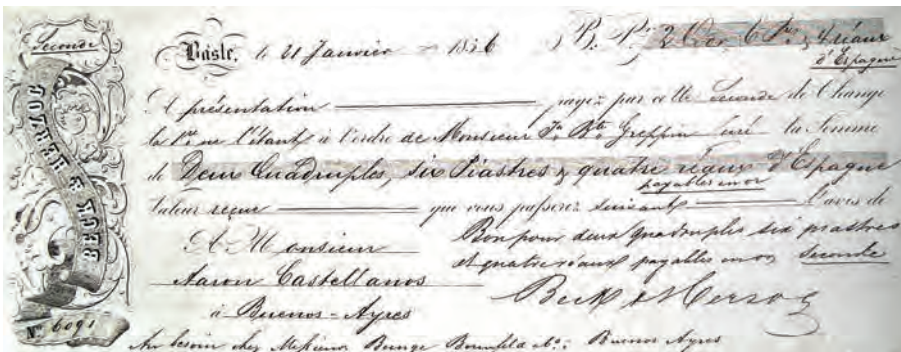 Seconde
BECK & HERZOG
N.º 6091
Basle, le 21 Janvier 1856 B. P. 2 Qples 6 Pes & 4 réaux
d'Espagne
A présentation payez par cette Seconde de Change
la 1re ne l'étant à l'ordre de Monsieur Jn Bte Greppin Curé la Somme
de Deux Quadruples, six Piastres & quatre réaux d'Espagne
payables en or
Valeur reçue que vous passerez suivant l'avis de
A Monsieur
Aaron Castellanos
à Buenos-Ayres
Bon pour deux quadruples six piastres
et quatre réaux payables en or Seconde
Beck & Herzog
Au besoin chez Messieurs Bunge Bornefeld & Co: Buenos Ayres